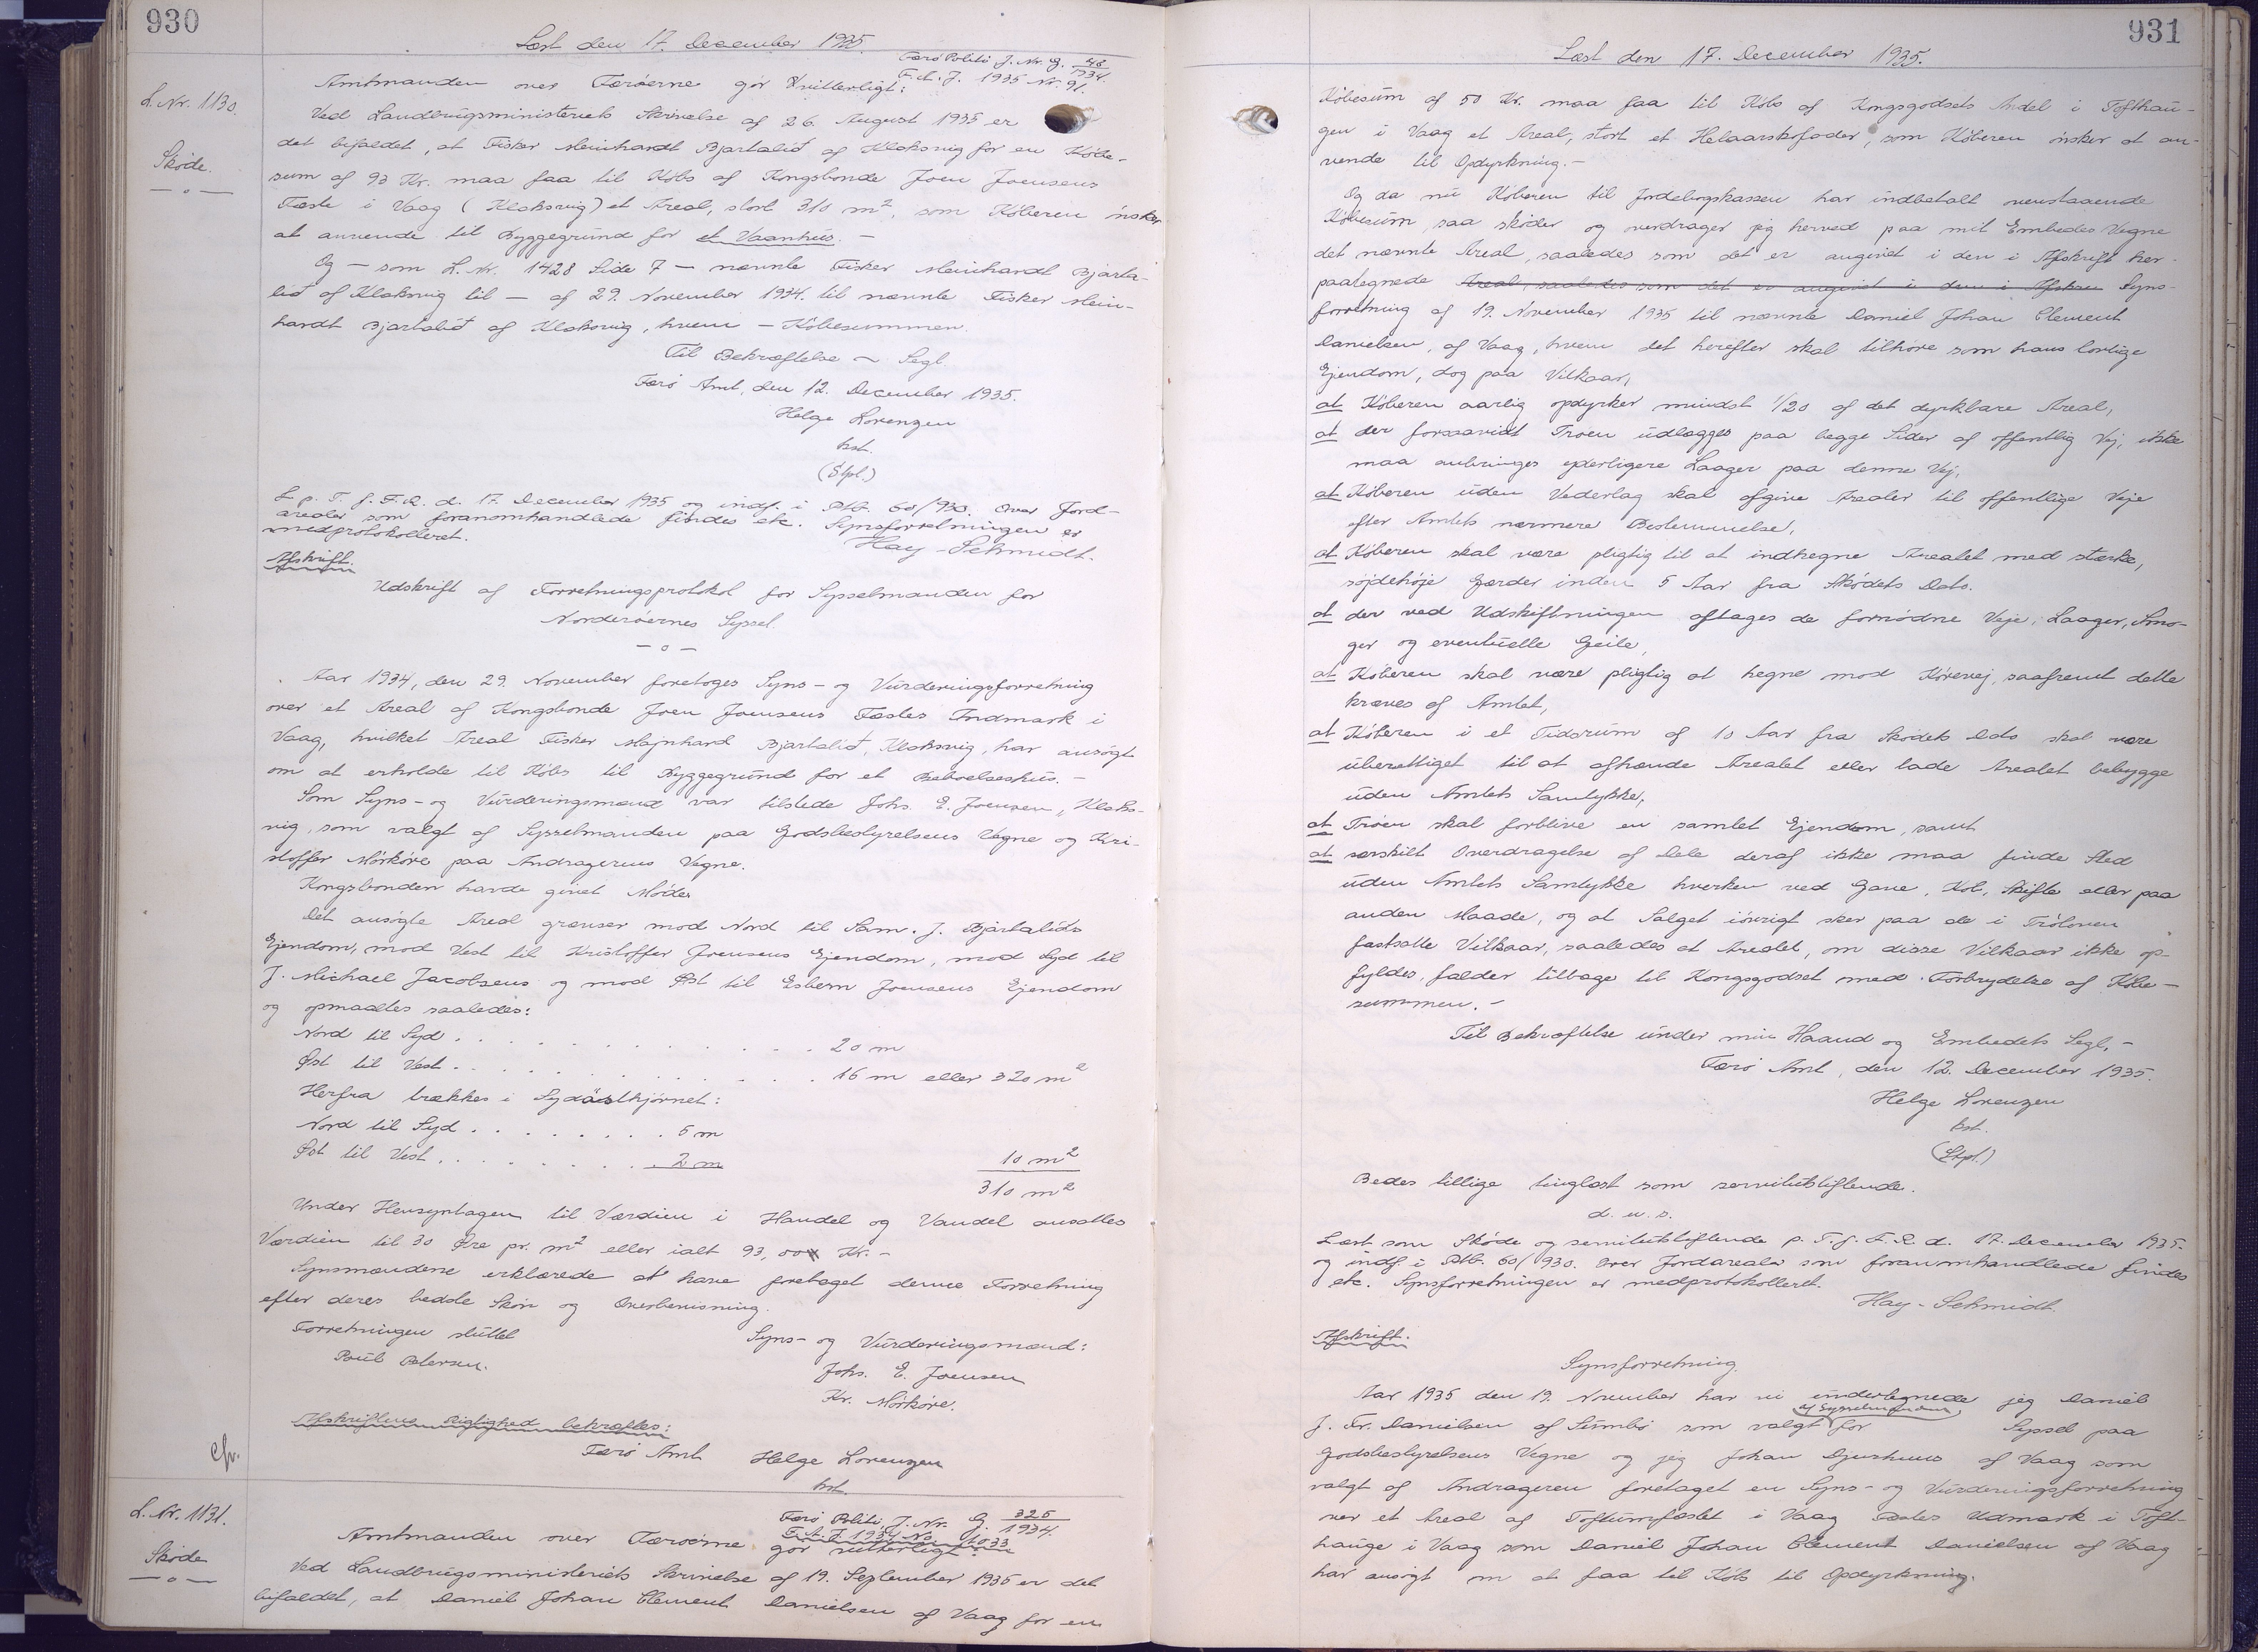 930
Læst den 17. December 1935.
Færø Politi J. Nr. G. 48/1934.
F.A.J. 1935 Nr. 91.
L. Nr. 1130.
Skøde.
Amtmanden over Færøerne gör vitterligt:
Ved Landbrugsministeriets Skrivelse af 26. August 1935 er
det bifaldet, at Fisker Meinhardt Bjartalið af Klaksvig for en Købe-
sum af 93 Kr. maa faa til Köbs af Kongsbonde Joen Joensens
Fæste i Vaag (Klaksvig) et Areal, stort 310 m², som Köberen önsker
at anvende til Byggegrund for et Vaanhus. –
Og – som L. Nr. 1428 Side 7 – nævnte Fisker Meinhardt Bjarta-
lið af Klaksvig til – af 29. November 1934. til nævnte Fisker Mein-
hardt Bjartalið af Klaksvig, hvem – Köbesummen.
Til Bekræftelse ~ Segl.
Færö Amt, den 12. December 1935.
Helge Lorenzen
kst.
(Stpl.)
L. p. T. f. F.R. d. 17. December 1935 og indf. i Ptb. 60/930. Over Jord-
arealer som foranomhandlede findes etc. Synsforretningen er
medprotokolleret.
Hay-Schmidt.
Afskrift.
Udskrift af Forretningsprotokol for Sysselmanden for
Norderöernes Syssel.
– o –
Aar 1934, den 29. November foretoges Syns- og Vurderingsforretning
over et Areal af Kongsbonde Joen Joensens Fæstes Indmark i
Vaag, hvilket Areal Fisker Majnhard Bjartalið, Klaksvig, har ansögt
om at erholde til Köbs til Byggegrund for et Beboelseshus. –
Som Syns- og Vurderingsmænd var tilstede Johs. E. Joensen, Klaks-
vig, som valgt af Sysselmanden paa Godsbestyrelsens Vegne og Kri-
stoffer Mörköre paa Andragerens Vegne.
Kongsbonden havde givet Möde.
Det ansögte Areal grænser mod Nord til Sam. J. Bjartalids
Ejendom, mod Vest til Kristoffer Joensens Ejendom, mod Syd til
J. Michael Jacobsens og mod Øst til Esbern Joensens Ejendom
og opmaaltes saaledes:
Nord til Syd . . . . . . . . . . . . . . 20 m
Øst til Vest . . . . . . . . . . . . . . 16 m eller 320 m²
Herfra trækkes i Sydösthjörnet:
Nord til Syd . . . . . . . . 5 m
Øst til Vest . . . . . . . . 2 m 10 m²
310 m²
Under Hensyntagen til Værdien i Handel og Vandel ansattes
Værdien til 30 Øre pr. m² eller ialt 93,00 Kr. –
Synsmændene erklærede at have foretaget denne Forretning
efter deres bedste Skön og Overbevisning.
Forretningen sluttet Syns- og Vurderingsmænd:
Poul Petersen. Johs. E. Joensen
Kr. Mörköre.
Afskriftens Rigtighed bekræftes:
Færö Amt Helge Lorenzen
kst.
L. Nr. 1131.
Skøde
– o –
Færö Politi J. Nr. G. 325/1934.
F.A.J. 1934 No. 1033
Amtmanden over Færøerne gör vitterligt:
Ved Landbrugsministeriets Skrivelse af 19. September 1935 er det
bifaldet, at Daniel Johan Clement Danielsen af Vaag for en
931
Læst den 17. December 1935.
Köbesum af 50 Kr. maa faa til Köbs af Kongsgodsets Andel i Tofthau-
gen i Vaag et Areal, stort et Helaarsfoder, som Köberen önsker at an-
vende til Opdyrkning. –
Og da nu Köberen til Jordebogskassen har indbetalt ovenstaaende
Köbesum, saa sköder og overdrager jeg herved paa mit Embedes Vegne
det nævnte Areal, saaledes som det er angivet i den i Afskrift her-
paategnede Areal, saaledes som det er angivet i den i Afskrift Syns-
forretning af 19. November 1935 til nævnte Daniel Johan Clement
Danielsen, af Vaag, hvem det herefter skal tilhöre som hans lovlige
Ejendom, dog paa Vilkaar,
at Köberen aarlig opdyrker mindst 1/20 af det dyrkbare Areal,
at der forsaavidt Tröen udlægges paa begge Sider af offentlig Vej, ikke
maa anbringes yderligere Laager paa denne Vej,
at Köberen uden Vederlag skal afgive Arealer til offentlige Veje
efter Amtets nærmere Bestemmelse,
at Köberen skal være pligtig til at indhegne Arealet med stærke,
söjdehöje Gærder inden 5 Aar fra Skødets Dato.
at der ved Udskiftningen aftages de fornödne Veje, Laager, Smö-
ger og eventuelle Geile,
at Köberen skal være pligtig at hegne mod Körevej, saafremt dette
kræves af Amtet,
at Köberen i et Tidsrum af 10 Aar fra Skødets Dato skal være
uberettiget til at afhænde Arealet eller lade Arealet bebygge
uden Amtets Samtykke,
at Tröen skal forblive en samlet Ejendom, samt
at særskilt Overdragelse af Dele deraf ikke maa finde Sted
uden Amtets Samtykke hverken ved Gave, Köb, Skifte eller paa
anden Maade, og at Salget iövrigt sker paa de i Trölovens
fastsatte Vilkaar, saaledes at Arealet, om disse Vilkaar ikke op-
fyldes, falder tilbage til Kongsgodset med Forbrydelse af Köbe-
summen. –
Til Bekræftelse under min Haand og Embedets Segl. –
Færö Amt, den 12. December 1935.
Helge Lorenzen
kst.
(Stpl.)
Bedes tillige tinglæst som servitutstiftende.
d. u. s.
Læst som Sköde og servitutstiftende p. T. f. F.R. d. 17. December 1935.
og indf. i Ptb. 60/930. Over Jordarealer som foranomhandlede findes
etc. Synsforretningen er medprotokolleret.
Hay-Schmidt.
Afskrift.
Synsforretning.
Aar 1935 den 19. November har vi undertegnede jeg Daniel
af Sysselmanden
J. Fr. Danielsen af Sumbö som valgt for Syssel paa
Godsbestyrelsens Vegne og jeg Johan Djurhuus af Vaag som
valgt af Andrageren foretaget en Syns- og Vurderingsforretning
over et Areal af Toftumfæstet i Vaag Fæstes Udmark i Toft-
hauge i Vaag som Daniel Johan Clement Danielsen af Vaag
har ansögt om at faa til Köbs til Opdyrkning.